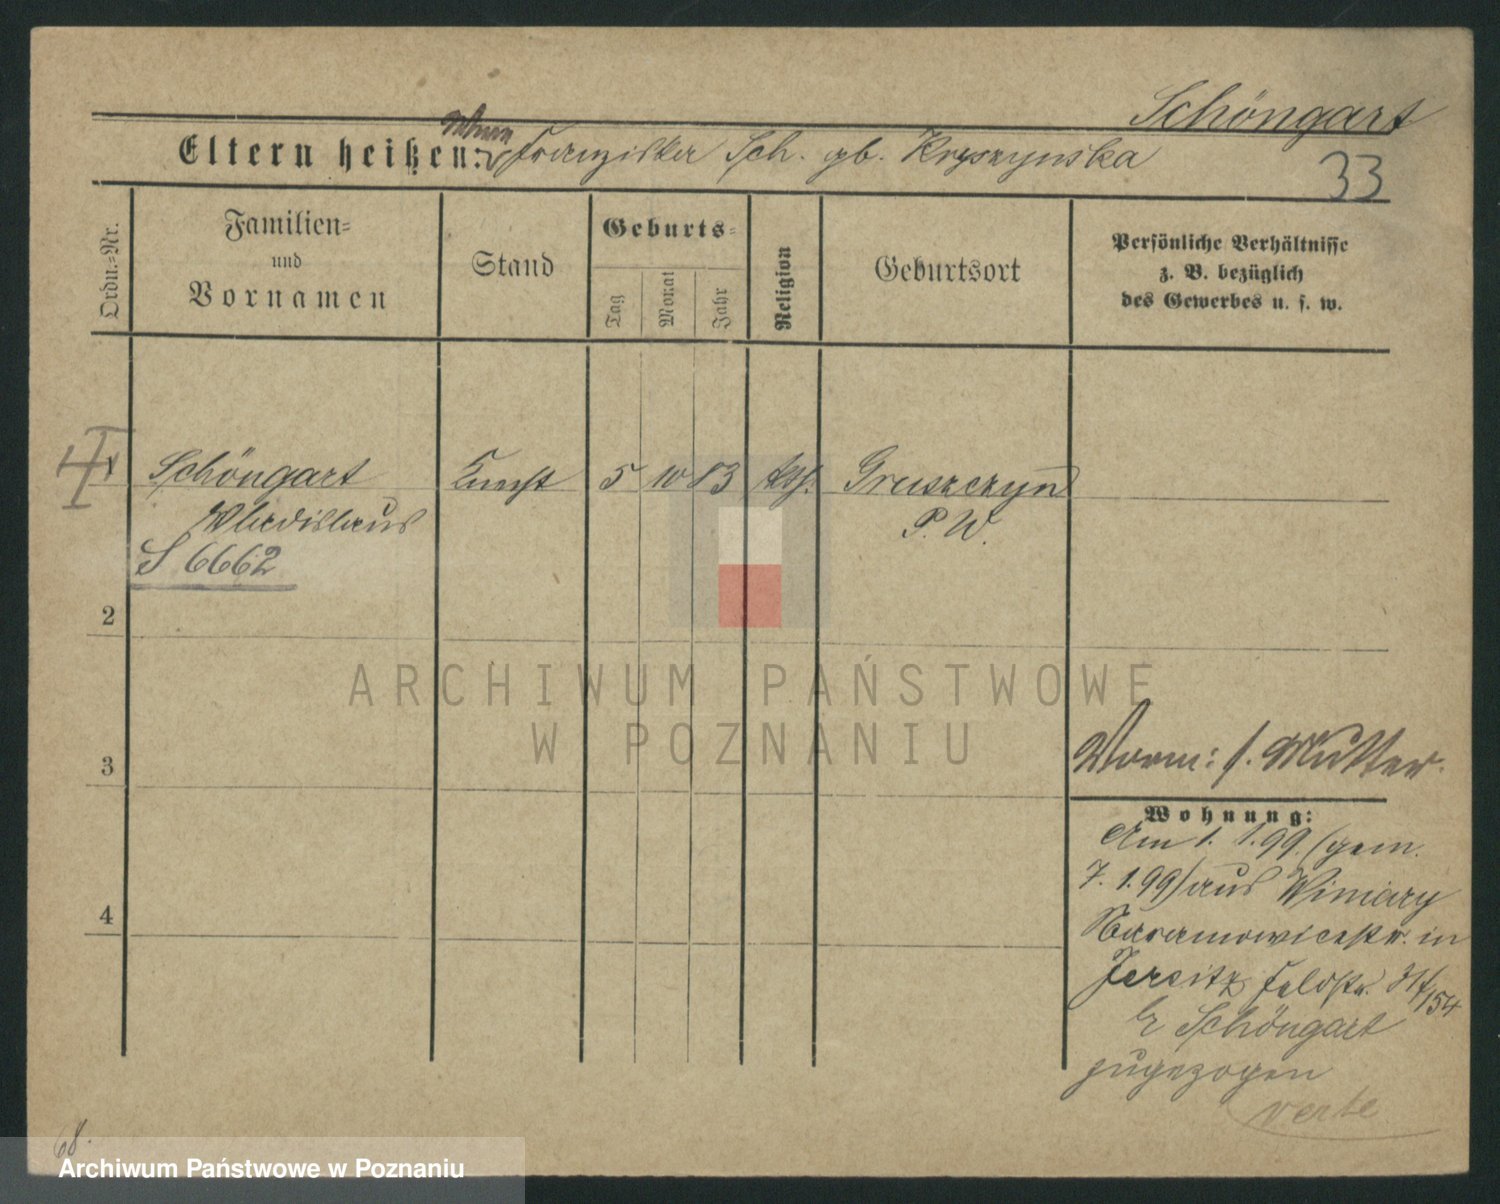 Schöngart
Eltern heißen: Franziska Sch. gb. Kryszynska
33
Ordn.=Nr.
Familien=
und
Vornamen
Stand
Geburts=
Tag
Monat
Jahr
Religion
Geburtsort
Persönliche Verhältnisse
z. B. bezüglich
des Gewerbes u. s. w.
1
Schöngart
5 10 83
Gruszczyn
Wladislaus
P. W.
S 6662
2
ARCHIWUM PAŃSTWOWE
W POZNANIU
3
Vorm: s. Mutter.
Wohnung:
Am 1. 1.99. (gem.
7. 1.99) aus Winiary
4
Naramowicestr. in
Jersitz Feldstr. 31/154
Schöngart
zugezogen
verte
68.
Archiwum Państwowe w Poznaniu